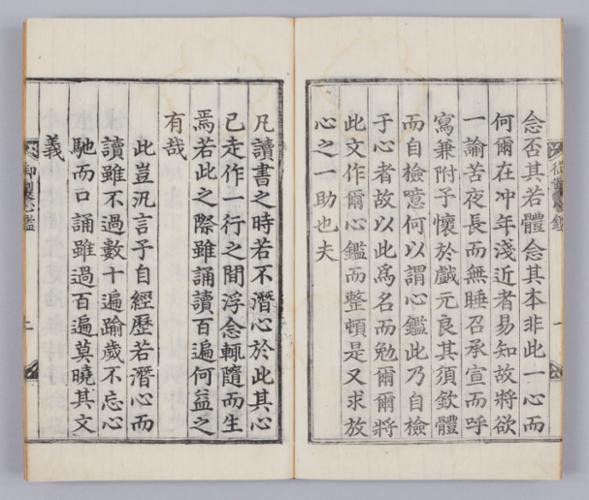 御製心鑑
一
念否其若體念其本非此一心而
何爾在冲年淺近者易知故將欲
一諭苦夜長而無睡召承宣而呼
寫兼附予懷於戲元良其須欽體
而自檢噫何以謂心鑑此乃自檢
于心者故以此爲名而勉爾爾將
此文作爾心鑑而整頓是又求放
心之一助也夫
凡讀書之時若不潛心於此其心
已走作一行之間浮念輒隨而生
焉若此之際雖誦讀百遍何益之
有哉
此豈汎言予自經歷若潛心而
讀雖不過數十遍踰歲不忘心
馳而口誦雖過百遍莫曉其文
義
御製心鑑